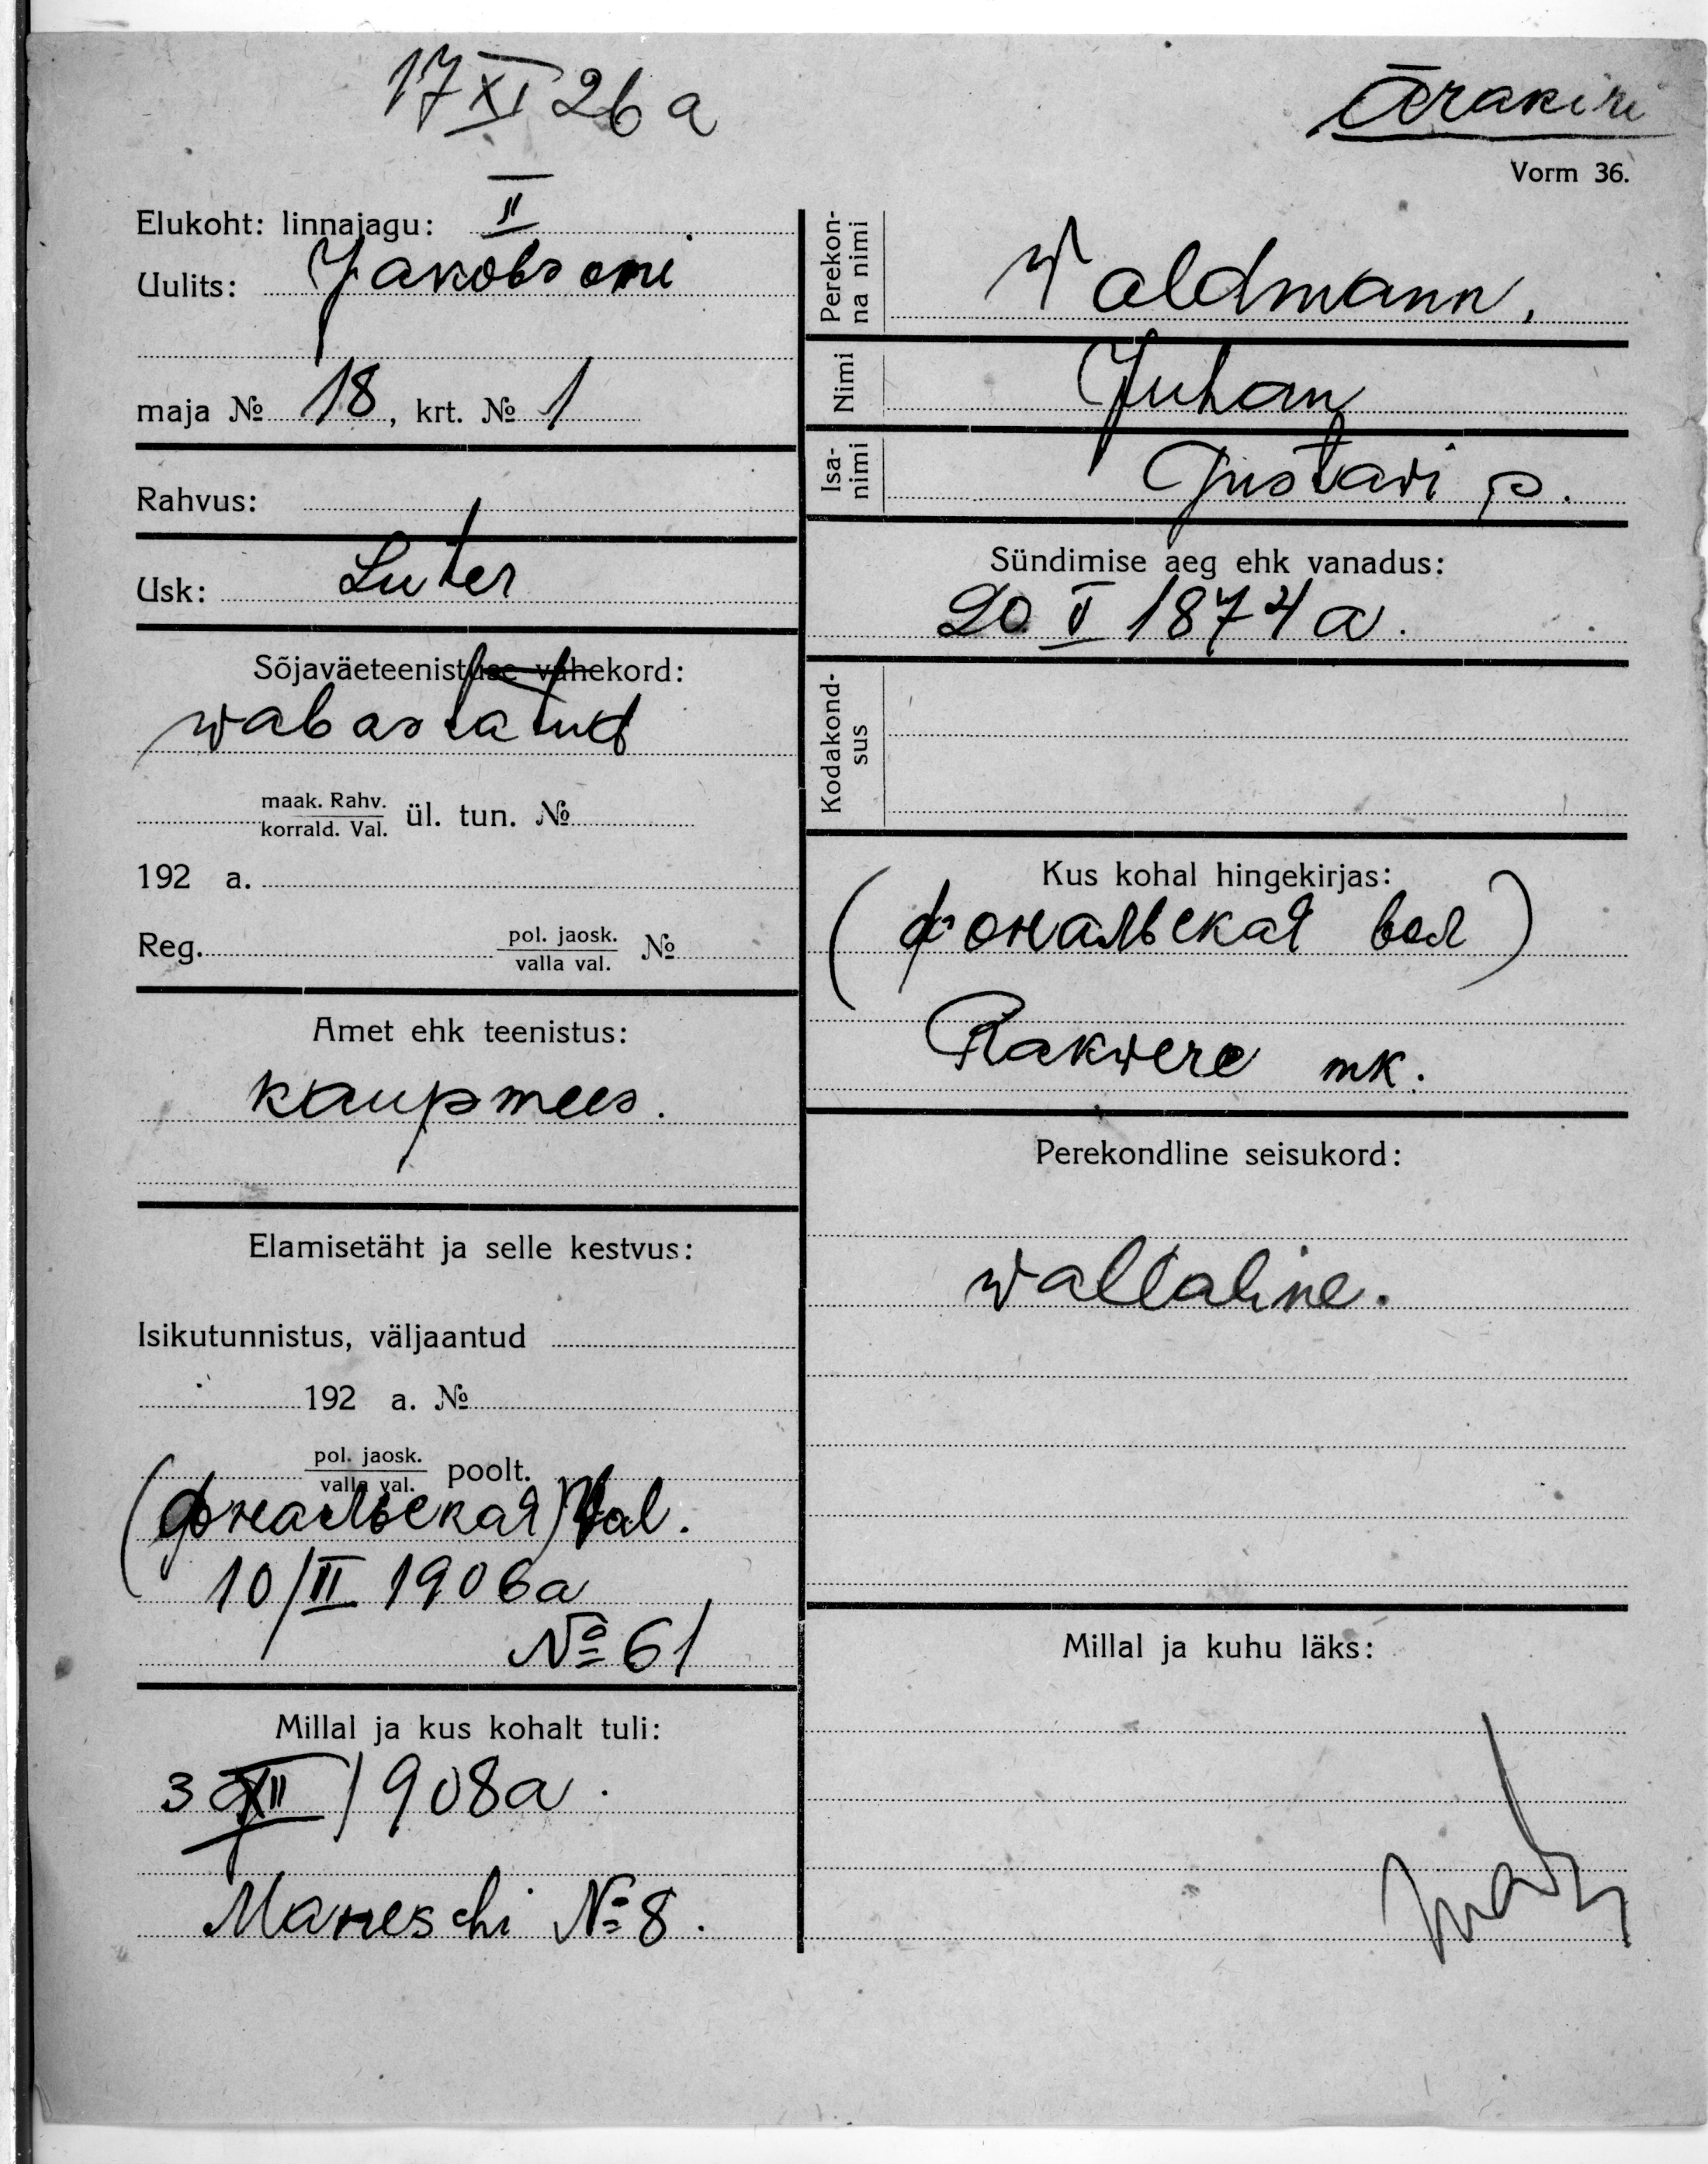 17 XI 26 a
Ärakiri
Vorm 36.
Elukoht: linnajagu: II
Uulits: Jakobsoni
maja № 18, krt. № 1
Rahvus:
Usk: Luter
Sõjaväeteenistuse vahekord:
wabastatud
maak. Rahv.
korrald. Val. ül. tun. №
192 a.
Reg. pol. jaosk.
valla val. №
Amet ehk teenistus:
kaupmees.
Elamisetäht ja selle kestvus:
Isikutunnistus, väljaantud
192 a. №
pol. jaosk.
valla val. poolt.
(Фональская) Wal.
10/II 1906 a
№ 61
Millal ja kus kohalt tuli:
XII 1908 a.
Maneschi № 8.
Perekon-
na nimi
Waldmann,
Nimi
Juhan
Isa-
nimi
Gustavi p.
Sündimise aeg ehk vanadus:
20 V 1874 a.
Kodakond-
sus
Kus kohal hingekirjas:
(Фональская вол)
Rakvere mk.
Perekondline seisukord:
wallaline.
Millal ja kuhu läks: